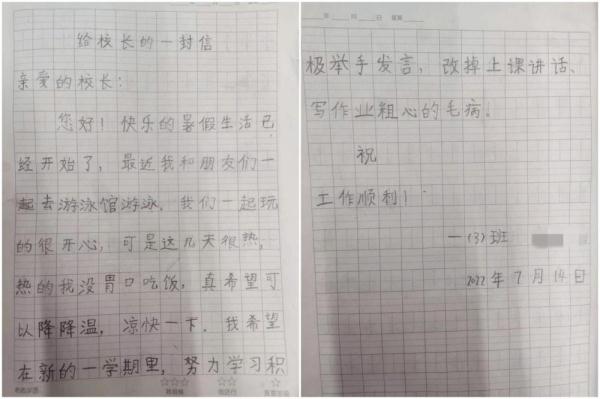 给校长的一封信
亲爱的校长：
您好！快乐的暑假生活已
经开始了，最近我和朋友们一
起去游泳馆游泳，我们一起玩
的很开心，可是这几天很热，
热的我没胃口吃饭，真希望可
以降降温，凉快一下．我希望
在新的一学期里，努力学习积
极举手发言，改掉上课讲话、
写作业粗心的毛病！
祝
工作顺利！
一（3）班
2022年7月14日